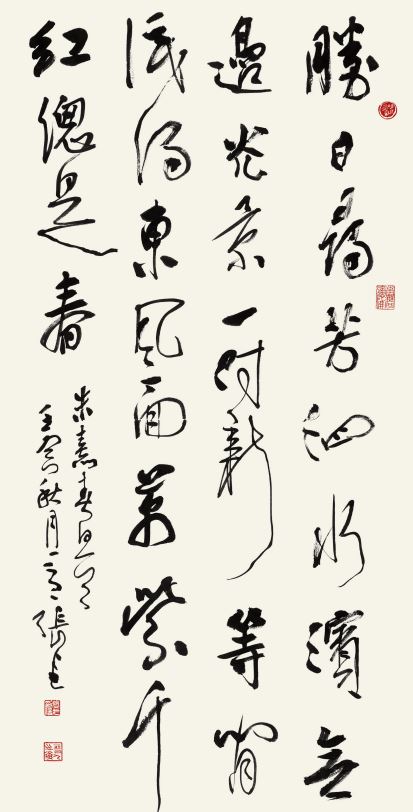 勝日尋芳泗水濱無
邊光景一時新等閒
識得東風面萬紫千
紅總是春
朱熹春日
壬寅秋月 張